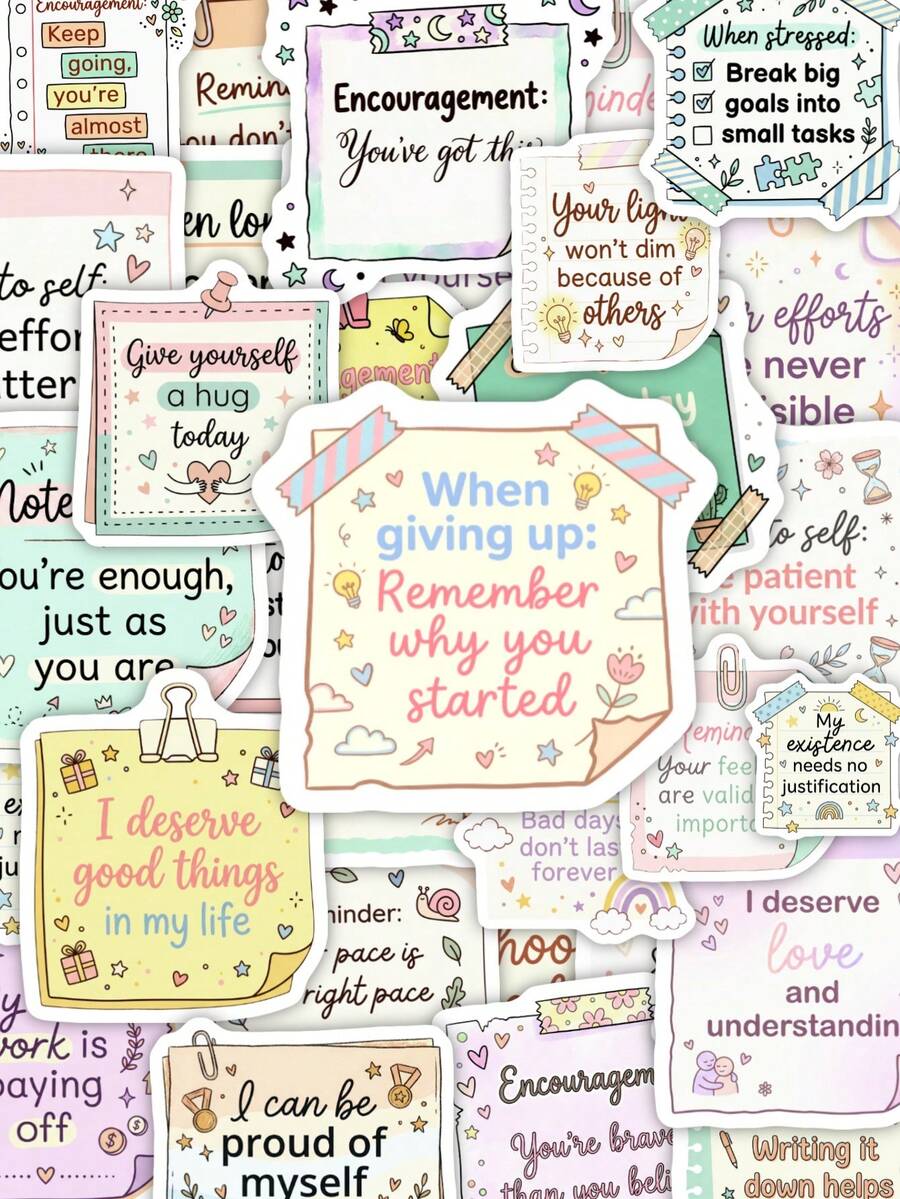 Encouragement:
Keep
going,
you're
almost
there
you don't
Encouragement:
You've got this
When stressed:
Break big
goals into
small tasks
Your light
won't dim
because of
others
to self:
Give yourself
a hug
today
efforts
never
Note
you're enough,
just as
you are
When
giving up:
Remember
why you
started
to self:
patient
with yourself
Your
are valid
My
existence
needs no
justification
I deserve
good things
in my life
Bad days
don't last
forever
pace is
right pace
I deserve
love
and
understanding
work is
paying
off
I can be
proud of
myself
You're brave
than you
Writing it
down helps